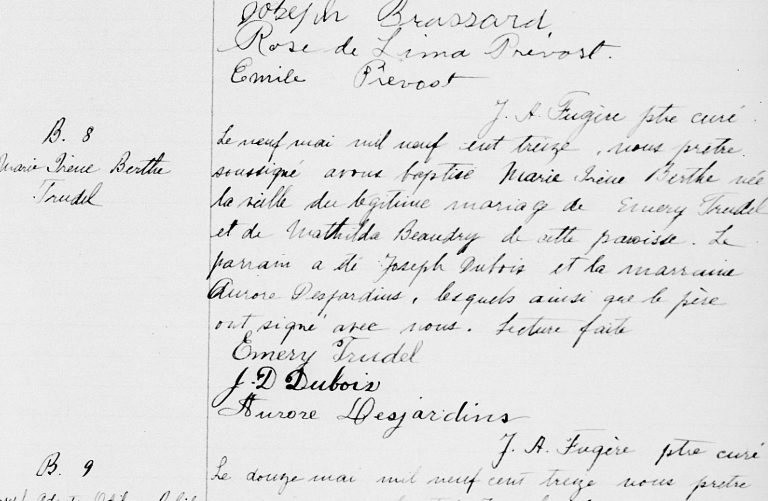 Joseph Brassard
Rose de Lima Prévost.
Emile Prévost
J. A. Fugère ptre curé
B. 8
Marie Irène Berthe
Trudel
Le neuf mai mil neuf cent treize, nous prêtre
soussigné avons baptisé Marie Irène Berthe née
la veille du légitime mariage de Emery Trudel
et de Mathilda Beaudry de cette paroisse. Le
parrain a été Joseph Dubois et la marraine
Aurore Desjardins, lesquels ainsi que le père
ont signé avec nous. Lecture faite
Emery Trudel
J. D Dubois
Aurore Desjardins
J. A. Fugère ptre curé
B. 9
Le douze mai mil neuf cent treize nous prêtre